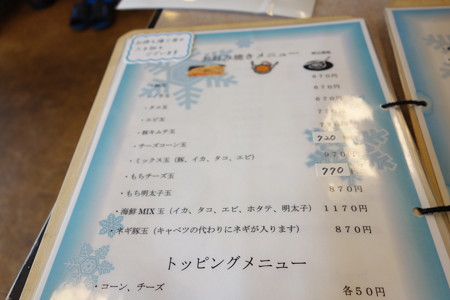 お好み焼きメニュー
870円
870円
・タコ玉
・エビ玉
・豚キムチ玉
・チーズコーン玉 720
・ミックス玉(豚、イカ、タコ、エビ) 970円
・もちチーズ玉 770
・もち明太子玉 870円
・海鮮MIX玉(イカ、タコ、エビ、ホタテ、明太子) 1170円
・ネギ豚玉(キャベツの代わりにネギが入ります) 870円
トッピングメニュー
・コーン、チーズ 各50円